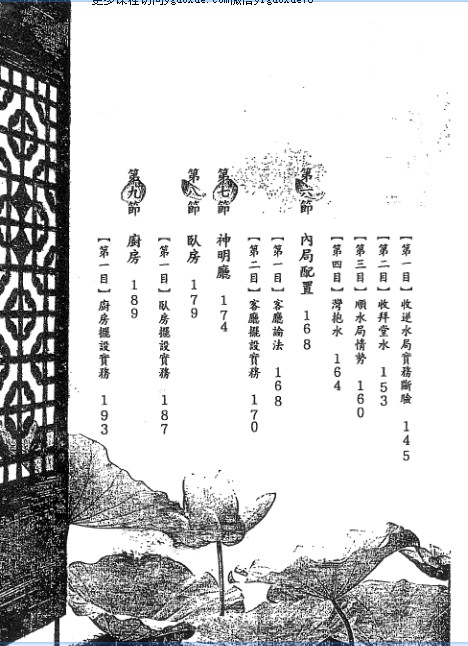 【第一目】收逆水局實務斷驗 145
【第二目】收拜堂水 153
【第三目】順水局情勢 160
【第四目】灣抱水 164
第六節 內局配置 168
【第一目】客廳論法 168
【第二目】客廳擺設實務 170
第七節 神明廳 174
第八節 臥房 179
【第一目】臥房擺設實務 187
第九節 廚房 189
【第一目】廚房擺設實務 193